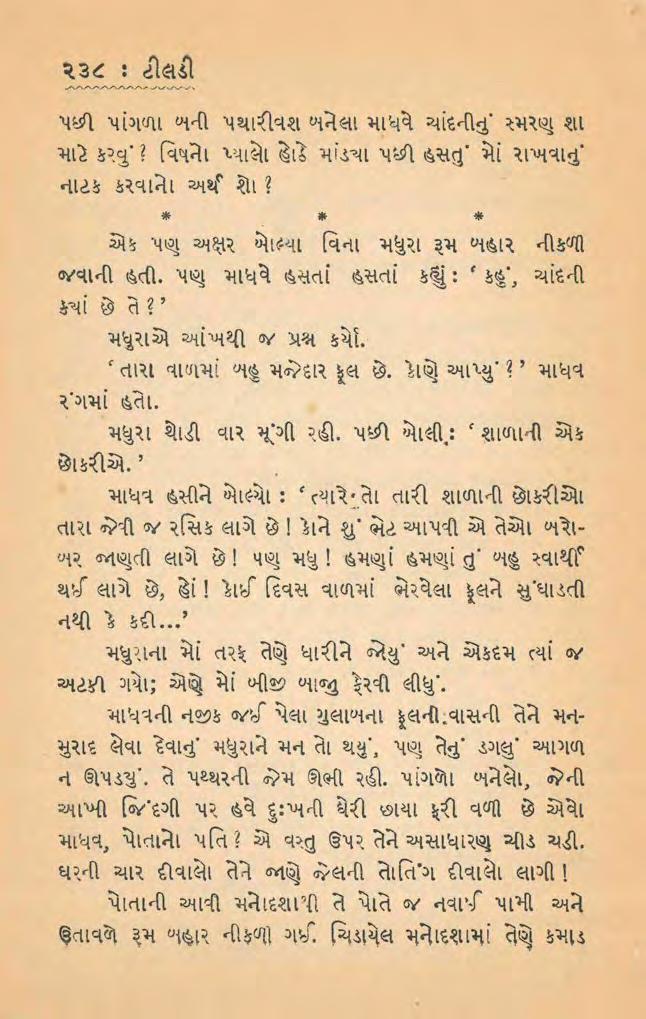 ૨૩૮ : ટીલડી
પછી પાંગળા બની પથારીવશ બનેલા માધવે ચાંદનીનું સ્મરણ શા
માટે કરવું ? વિષનો પ્યાલો હોઠે માંડ્યા પછી હસતું મોં રાખવાનું
નાટક કરવાનો અર્થ શો ?
* * *
એક પણ અક્ષર બોલ્યા વિના મધુરા રૂમ બહાર નીકળી
જવાની હતી. પણ માધવે હસતાં હસતાં કહ્યું : ‘ કહું, ચાંદની
ક્યાં છે તે ? ’
મધુરાએ આંખથી જ પ્રશ્ન કર્યો.
‘ તારા વાળમાં બહુ મજેદાર ફૂલ છે. કોણે આપ્યું ? ’ માધવ
રંગમાં હતો.
મધુરા થોડી વાર મૂંગી રહી. પછી બોલી : ‘ શાળાની એક
છોકરીએ. ’
માધવ હસીને બોલ્યો : ‘ ત્યારે તો તારી શાળાની છોકરીઓ
તારા જેવી જ રસિક લાગે છે ! કોને શું ભેટ આપવી એ તેઓ બરો-
બર જાણતી લાગે છે ! પણ મધુ ! હમણાં હમણાં તું બહુ સ્વાર્થી
થઈ લાગે છે, હોં ! કોઈ દિવસ વાળમાં ભેરવેલા ફૂલને સુંઘાડતી
નથી કે કદી...’
મધુરાના મોં તરફ તેણે ધારીને જોયું અને એકદમ ત્યાં જ
અટકી ગયો; એણે મોં બીજી બાજુ ફેરવી લીધું.
માધવની નજીક જઈ પેલા ગુલાબના ફૂલની વાસની તેને મન-
મુરાદ લેવા દેવાનું મધુરાને મન તો થયું, પણ તેનું ડગલું આગળ
ન ઊપડ્યું. તે પથ્થરની જેમ ઊભી રહી. પાંગળો બનેલો, જેની
આખી જિંદગી પર હવે દુઃખની ઘેરી છાયા ફરી વળી છે એવો
માધવ, પોતાનો પતિ ? એ વસ્તુ ઉપર તેને અસાધારણ ચીડ ચડી.
ઘરની ચાર દીવાલો તેને જાણે જેલની તોતિંગ દીવાલો લાગી !
પોતાની આવી મનોદશાથી તે પોતે જ નવાઈ પામી અને
ઉતાવળે રૂમ બહાર નીકળી ગઈ. ચિડાયેલ મનોદશામાં તેણે કમાડ